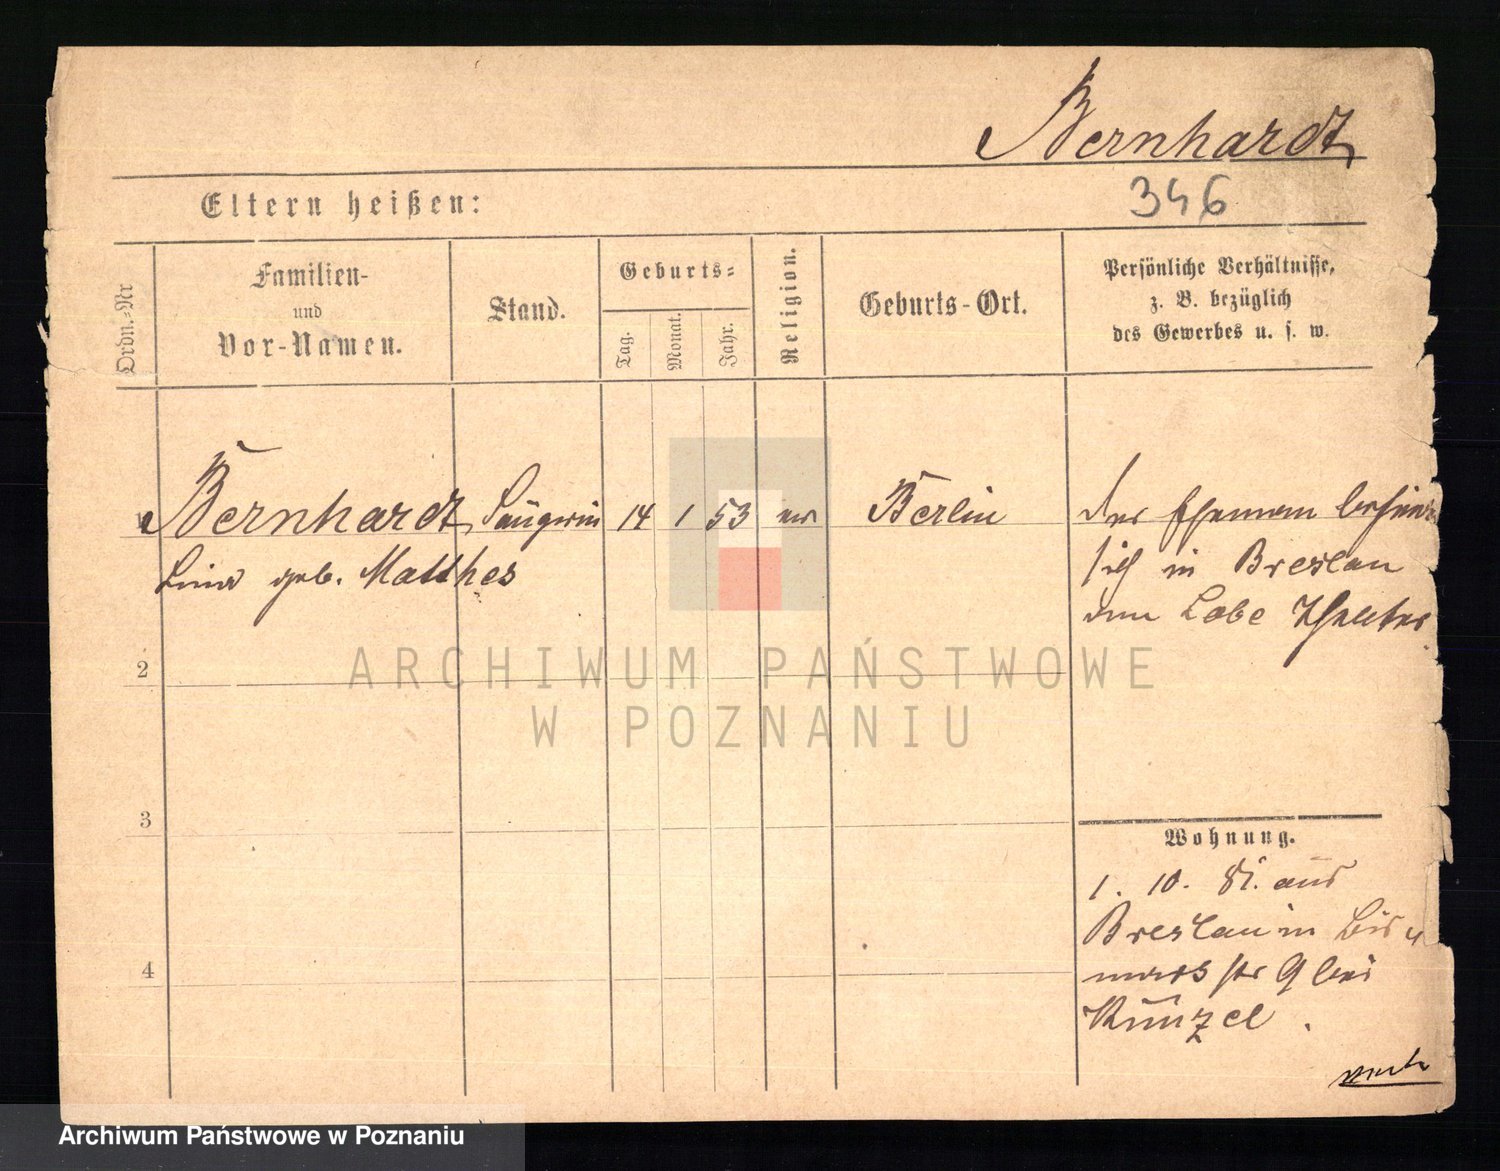 Bernhardt
Eltern heißen:
346
Ordn.=Nr
Familien-
und
Vor-Namen.
Stand.
Geburts=
Tag.
Monat.
Jahr.
Religion.
Geburts-Ort.
Persönliche Verhältnisse,
z. B. bezüglich
des Gewerbes u. s. w.
1
Bernhardt
Sängerin
14
1
53
ev
Berlin
der Ehemann
geb. Matthes
sich in Breslau
Lobe Theater
2
ARCHIWUM PAŃSTWOWE
W POZNANIU
3
Wohnung.
1. 10. 81. aus
Breslau in Bis
4
marckstr 9 bei
Künzel.
Archiwum Państwowe w Poznaniu